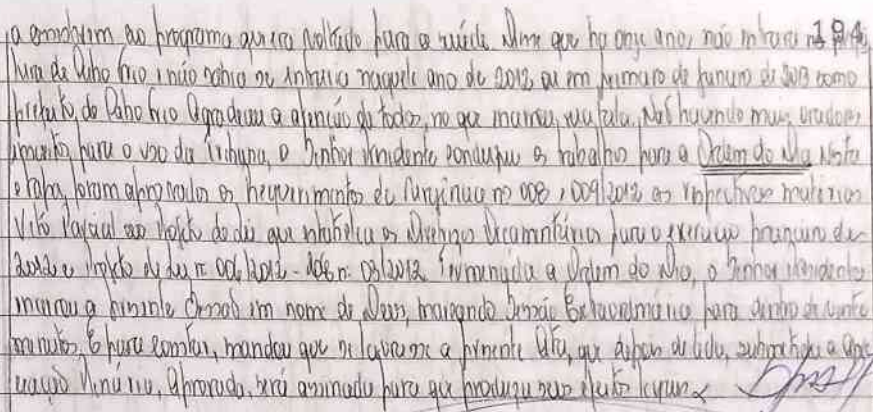 a assistiram ao programa que era voltado para a saúde. Disse que há onze anos não entrava na 194
tura de Cabo Frio e não sabia se entraria naquele ano de 2012 ou em primeiro de janeiro de 2013 como
prefeito de Cabo Frio. Agradeceu a atenção de todos, no que encerrou sua fala. Não havendo mais oradores
inscritos para o uso da Tribuna, o Senhor Presidente conduziu os trabalhos para a Ordem do Dia. Nesta
etapa, foram aprovados os Requerimentos de Urgência nº 008 e 009/2012 as respectivas matérias
Veto Parcial ao Projeto de Lei que estabelece as Diretrizes Orçamentárias para o exercício financeiro de
2012 e Projeto de Lei nº 006/2012 - nº 03/2012. Terminada a Ordem do Dia, o Senhor Presidente
encerrou a presente Sessão em nome de Deus, marcando Sessão Extraordinária para dentro de vinte
minutos. E para constar, mandou que se lavrasse a presente Ata, que depois de lida, submetida a apre
ciação Plenária, aprovada, será assinada para que produza seus efeitos legais.